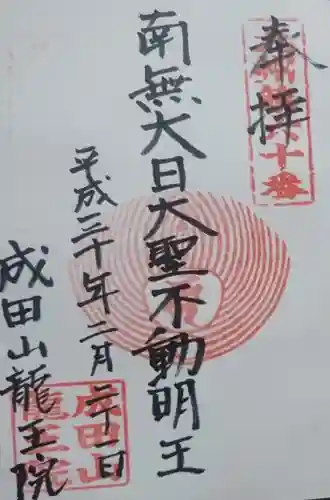 奉拝
南無大日大聖不動明王
平成三十年二月二十一日
成田山龍王院
十番
成田山
龍王院